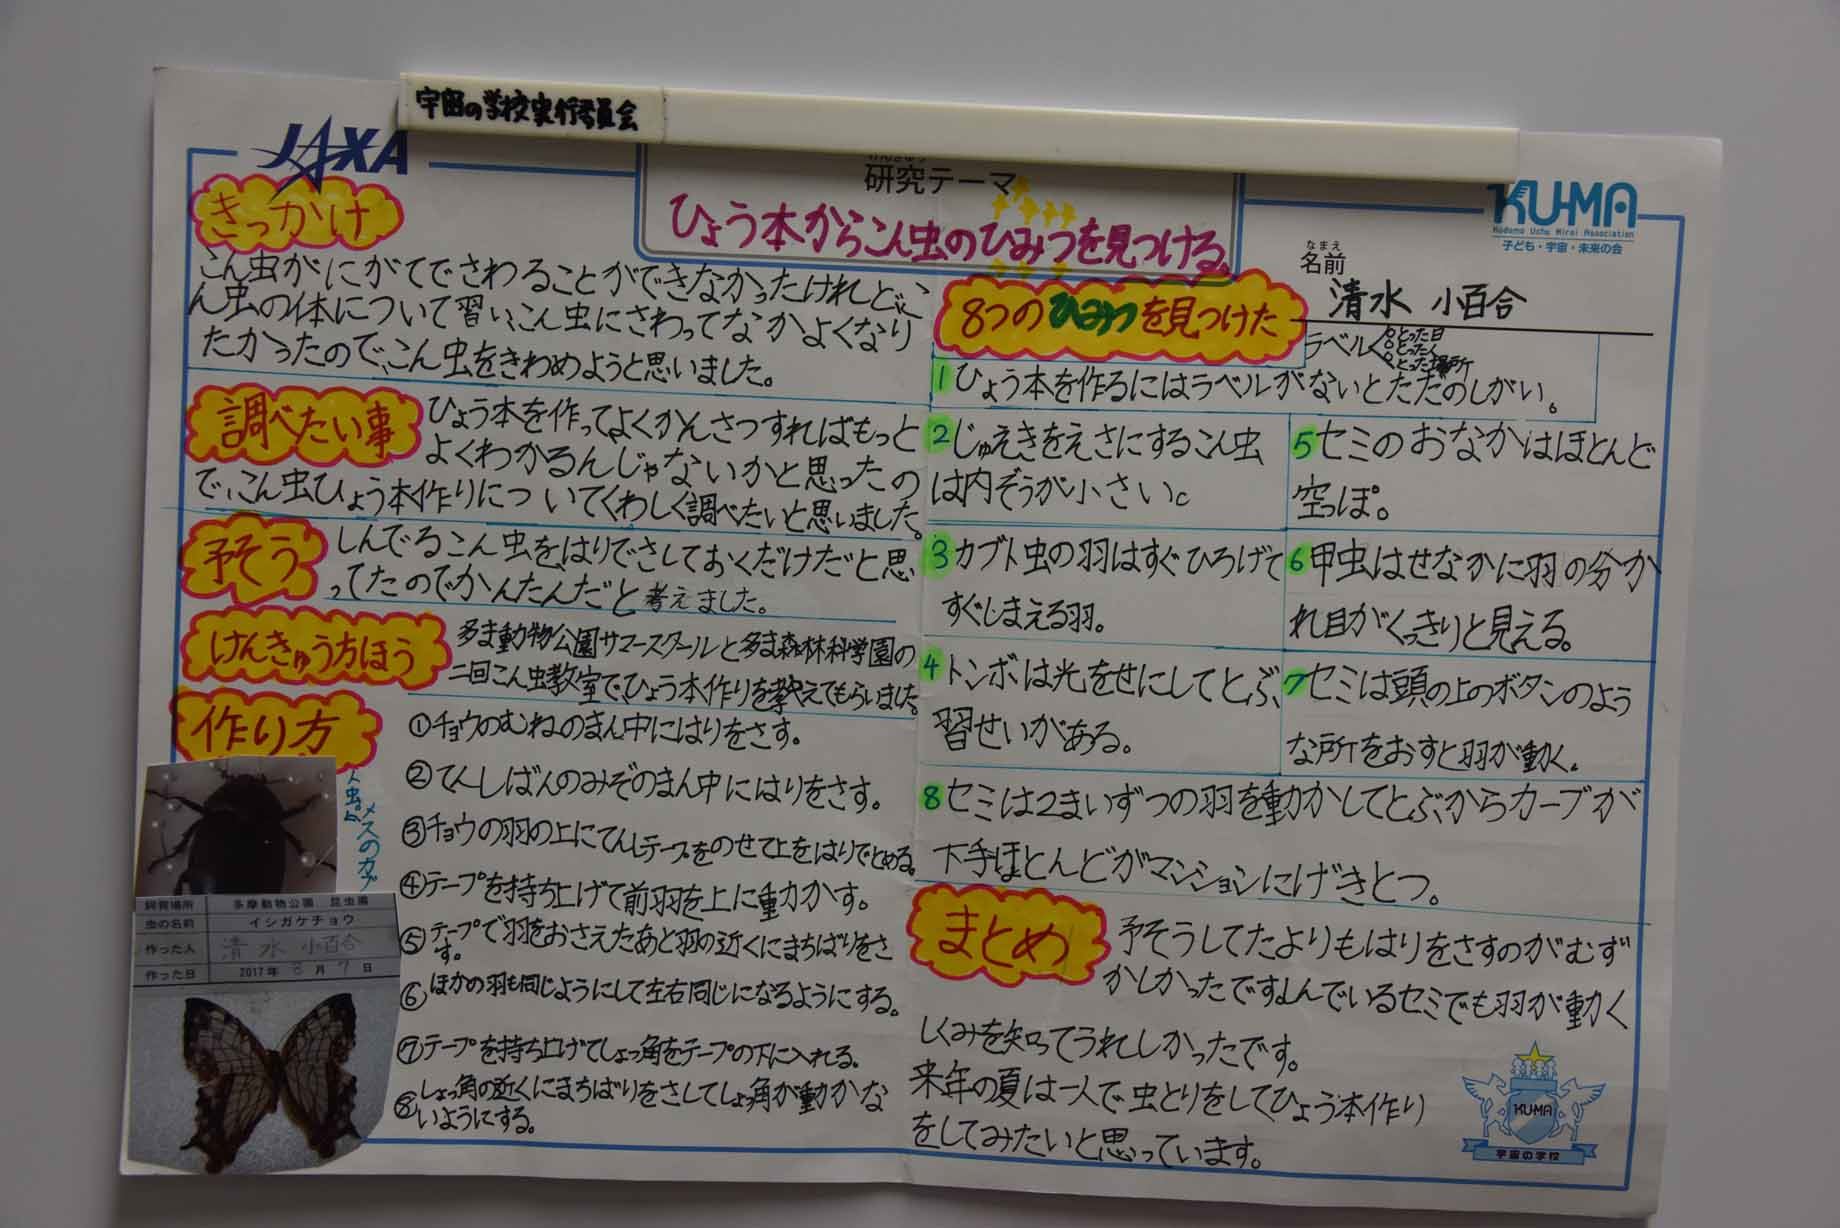 宇宙の学校実行委員会
JAXA
けんきゅう
研究テーマ
ひょう本からこん虫のひみつを見つける。
KU-MA
Kodomo Uchu Mirai Association
子ども・宇宙・未来の会
なまえ
名前
清水 小百合
きっかけ
こん虫がにがてでさわることができなかったけれど、こ
ん虫の体について習い、こん虫にさわってなかよくなり
たかったので、こん虫をきわめようと思いました。
調べたい事
ひょう本を作ってよくかんさつすればもっと
よくわかるんじゃないかと思ったの
で、こん虫ひょう本作りについてくわしく調べたいと思いました。
予そう
しんでるこん虫をはりでさしておくだけだと思
ってたのでかんたんだと考えました。
けんきゅう方ほう
多ま動物公園サマースクールと多ま森林科学園の
二回こん虫教室で、ひょう本作りを教えてもらいました。
作り方
①チョウのむねのまん中にはりをさす。
②てんしばんのみぞのまん中にはりをさす。
③チョウの羽の上にてんしテープをのせて上をはりでとめる。
④テープを持ち上げて前羽を上に動かす。
⑤テープで羽をおさえたあと羽の近くにまちばりをさ
す。
⑥ほかの羽も同じようにして左右同じになるようにする。
⑦テープを持ち上げてしょっ角をテープの下に入れる。
⑧しょっ角の近くにまちばりをさしてしょっ角が動かな
いようにする。
メスのカブ
ト虫。
飼育場所 多摩動物公園 昆虫園
虫の名前 イシガケチョウ
作った人 清水 小百合
作った日 2017年 8月 7日
8つのひみつを見つけた
ラベル
とった日
とった人
とった場所
1 ひょう本を作るにはラベルがないとただのしがい。
2 じゅえきをえさにするこん虫
は内ぞうが小さい。
3 カブト虫の羽はすぐひろげて
すぐしまえる羽。
4 トンボは光をせにしてとぶ
習せいがある。
5 セミのおなかはほとんど
空っぽ。
6 甲虫はせなかに羽の分か
れ目がくっきりと見える。
7 セミは頭の上のボタンのよう
な所をおすと羽が動く。
8 セミは2まいずつの羽を動かしてとぶからカーブが
下手ほとんどがマンションにげきとつ。
まとめ
予そうしてたよりもはりをさすのがむず
かしかったです。しんでいるセミでも羽が動く
しくみを知ってうれしかったです。
来年の夏は一人で虫とりをしてひょう本作り
をしてみたいと思っています。
KUMA
宇宙の学校